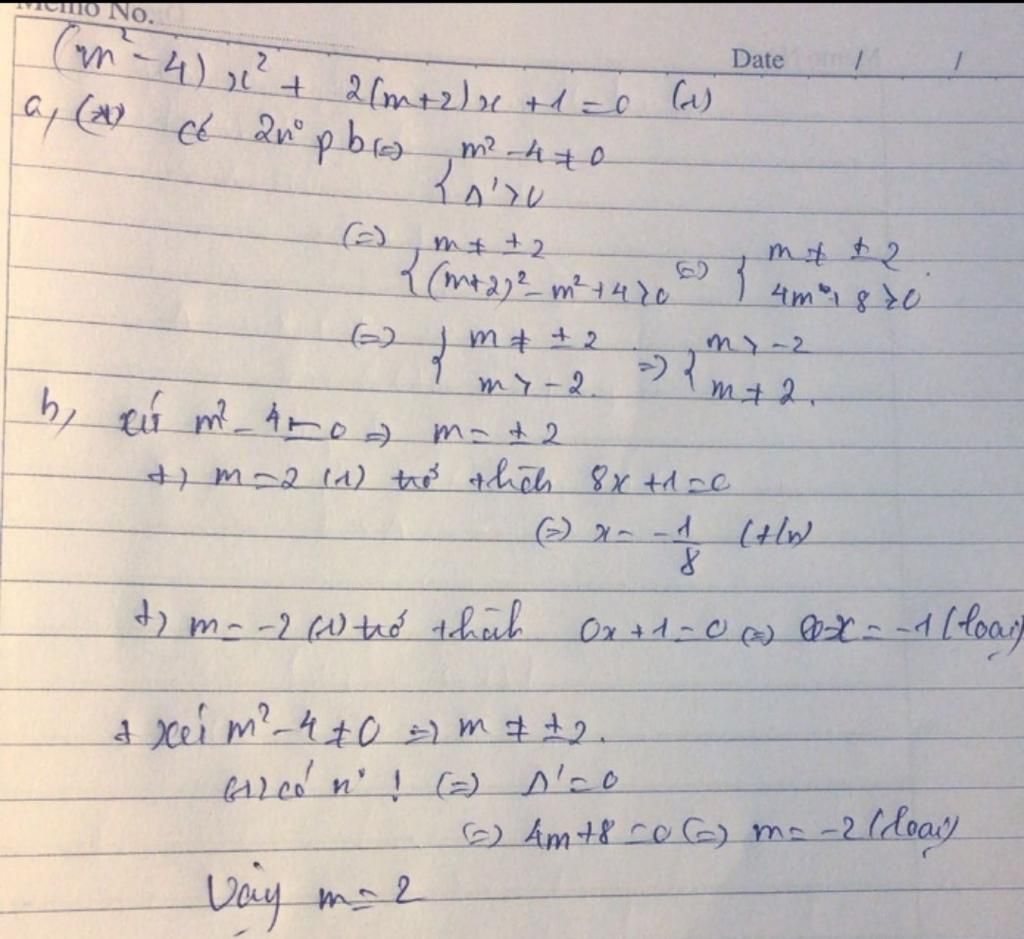 Memo No.
Date / /
(m² - 4)x² + 2(m+2)x + 1 = 0 (1)
a, (1) có 2n° pb (=) { m² - 4 ≠ 0
Δ' > 0
(=) { m ≠ ± 2 (=) { m ≠ ± 2
(m+2)² - m² + 4 > 0 4m + 8 > 0
(=) { m ≠ ± 2 => { m > -2
m > -2. m ≠ 2.
b, xét m² - 4 = 0 => m = ± 2
+) m = 2 (1) trở thành 8x + 1 = 0
(=) x = -1/8 (t/m)
+) m = -2 (1) trở thành 0x + 1 = 0 (=) 0x = -1 (loại)
+ xét m² - 4 ≠ 0 => m ≠ ± 2.
(1) có n° ! (=) Δ' = 0
(=) 4m + 8 = 0 (=) m = -2 (loại)
Vậy m = 2